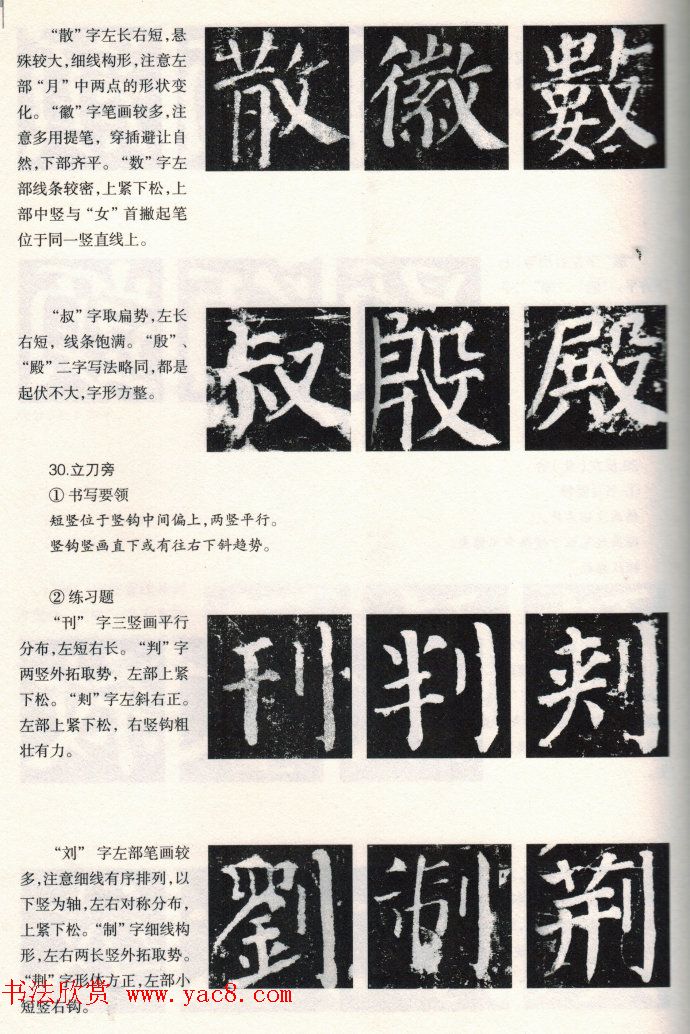 “散”字左长右短,悬
殊较大,细线构形,注意左
部“月”中两点的形状变
化。“徽”字笔画较多,注
意多用提笔，穿插避让自
然,下部齐平。“数”字左
部线条较密,上紧下松,上
部中竖与“女”首撇起笔
位于同一竖直线上。
散 徽 數
“叔”字取扁势,左长
右短，线条饱满。“殷”、
“殿”二字写法略同,都是
起伏不大,字形方整。
叔 殷 殿
30.立刀旁
① 书写要领
短竖位于竖钩中间偏上,两竖平行。
竖钩竖画直下或有往右下斜趋势。
② 练习题
“刊”字三竖画平行
分布,左短右长。“判”字
两竖外拓取势，左部上紧
下松。“刾”字左斜右正。
左部上紧下松，右竖钩粗
壮有力。
刊 判 刾
“刘”字左部笔画较
多,注意细线有序排列,以
下竖为轴，左右对称分布，
上紧下松。“制”字细线构
形,左右两长竖外拓取势。
“荆”字形体方正,左部小
短竖右钩。
劉 制 荆
书法欣赏 www.yac8.com